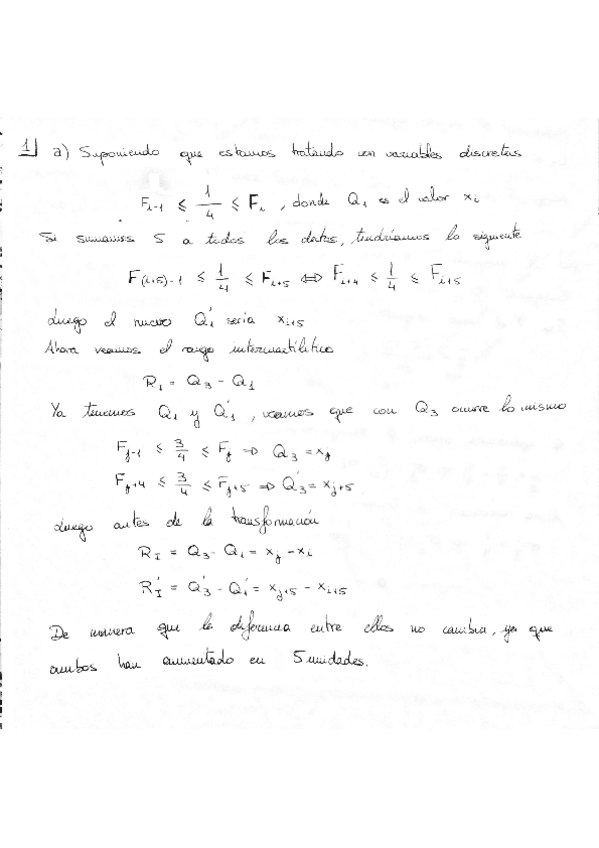 1 a) Suponiendo que estamos tratando con variables discretas
F_{i-1} ≤ 1/4 ≤ F_i , donde Q_1 es el valor x_i
Si sumamos 5 a todos los datos, tendríamos lo siguiente
F_{(i+5)-1} ≤ 1/4 ≤ F_{i+5} ⇔ F_{i+4} ≤ 1/4 ≤ F_{i+5}
Luego el nuevo Q_1' sería x_{i+5}
Ahora veamos el rango intercuartilitico
R_I = Q_3 - Q_1
Ya tenemos Q_1 y Q_1', veamos que con Q_3 ocurre lo mismo
F_{j-1} ≤ 3/4 ≤ F_j ⇒ Q_3 = x_j
F_{j+4} ≤ 3/4 ≤ F_{j+5} ⇒ Q_3' = x_{j+5}
Luego antes de la transformación
R_I = Q_3 - Q_1 = x_j - x_i
R_I' = Q_3' - Q_1' = x_{j+5} - x_{i+5}
De manera que la diferencia entre ellos no cambia, ya que
ambos han aumentado en 5 unidades.